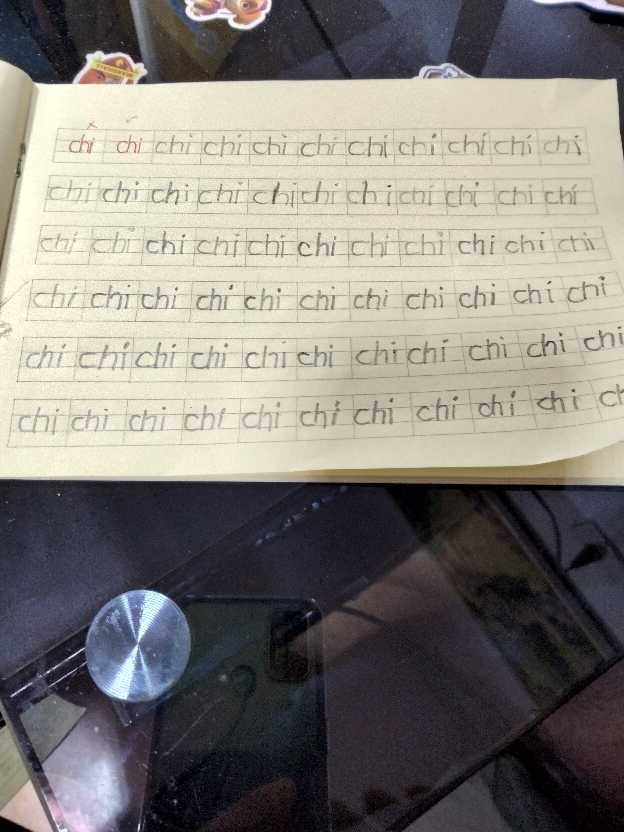 chi chi chi chi chi chi chi chi chi chi chi
chi chi chi chi chi chi chi chi chi chi chi
chi chi chi chi chi chi chi chi chi chi chi
chi chi chi chi chi chi chi chi chi chi chi
chi chi chi chi chi chi chi chi chi chi chi
chi chi chi chi chi chi chi chi chi chi ch